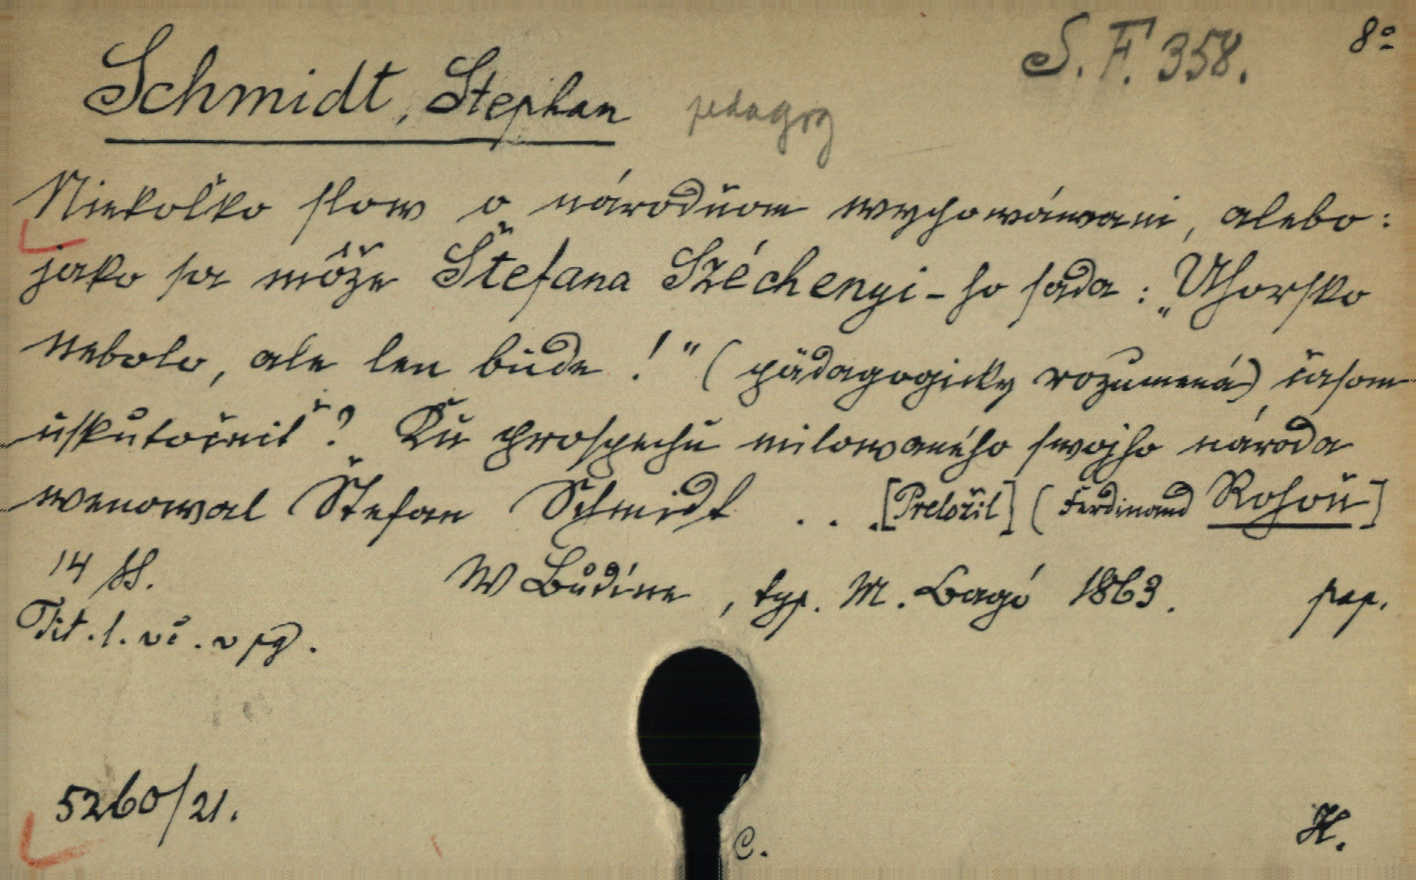 S. F. 358. 8º
Schmidt, Stephan pedagog
Niekoľko slow o národňom wychowáwani, alebo:
jako sa môže Štefana Széchenyi-ho sada: „Uhorsko
nebolo, ale len bude!" (pädagogicky rozumená) časom
uskutočniť? Ku prospechu milowaného swojho národa
wenowal Štefan Schmidt ... [Preložil] (Ferdinand Rohoň]
14 ss. W Budíne, typ. M. Bagó 1863. pap.
Tit. l. vč. v pg.
5260/21.
C. H.